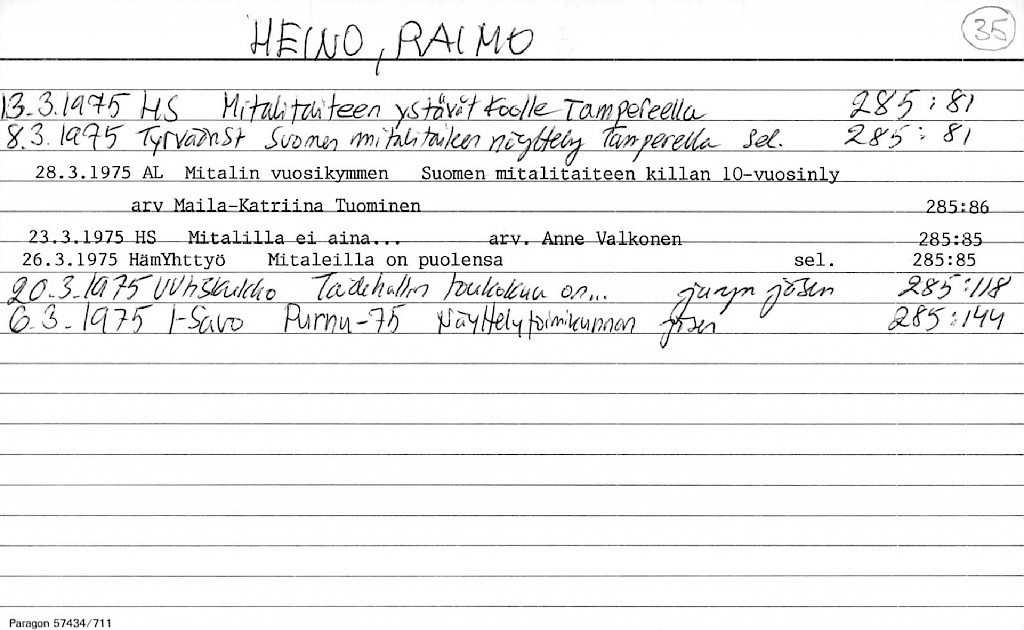 HEINO, RAIMO 35
13.3.1975 HS Mitalitaiteen ystävät koolle Tampereella 285:81
8.3.1975 TyrväänSt Suomen mitalitaiteen näyttely Tampereella sel. 285:81
28.3.1975 AL Mitalin vuosikymmen Suomen mitalitaiteen killan 10-vuosinly
arv Maila-Katriina Tuominen 285:86
23.3.1975 HS Mitalilla ei aina... arv. Anne Valkonen 285:85
26.3.1975 HämYhttyö Mitaleilla on puolensa sel. 285:85
20.3.1975 Uutiskukko Taidehallin toukokuu on... juryn jäsen 285:118
6.3.1975 I-Savo Purnu-75 Näyttelytoimikunnan jäsen 285:144
Paragon 57434/711